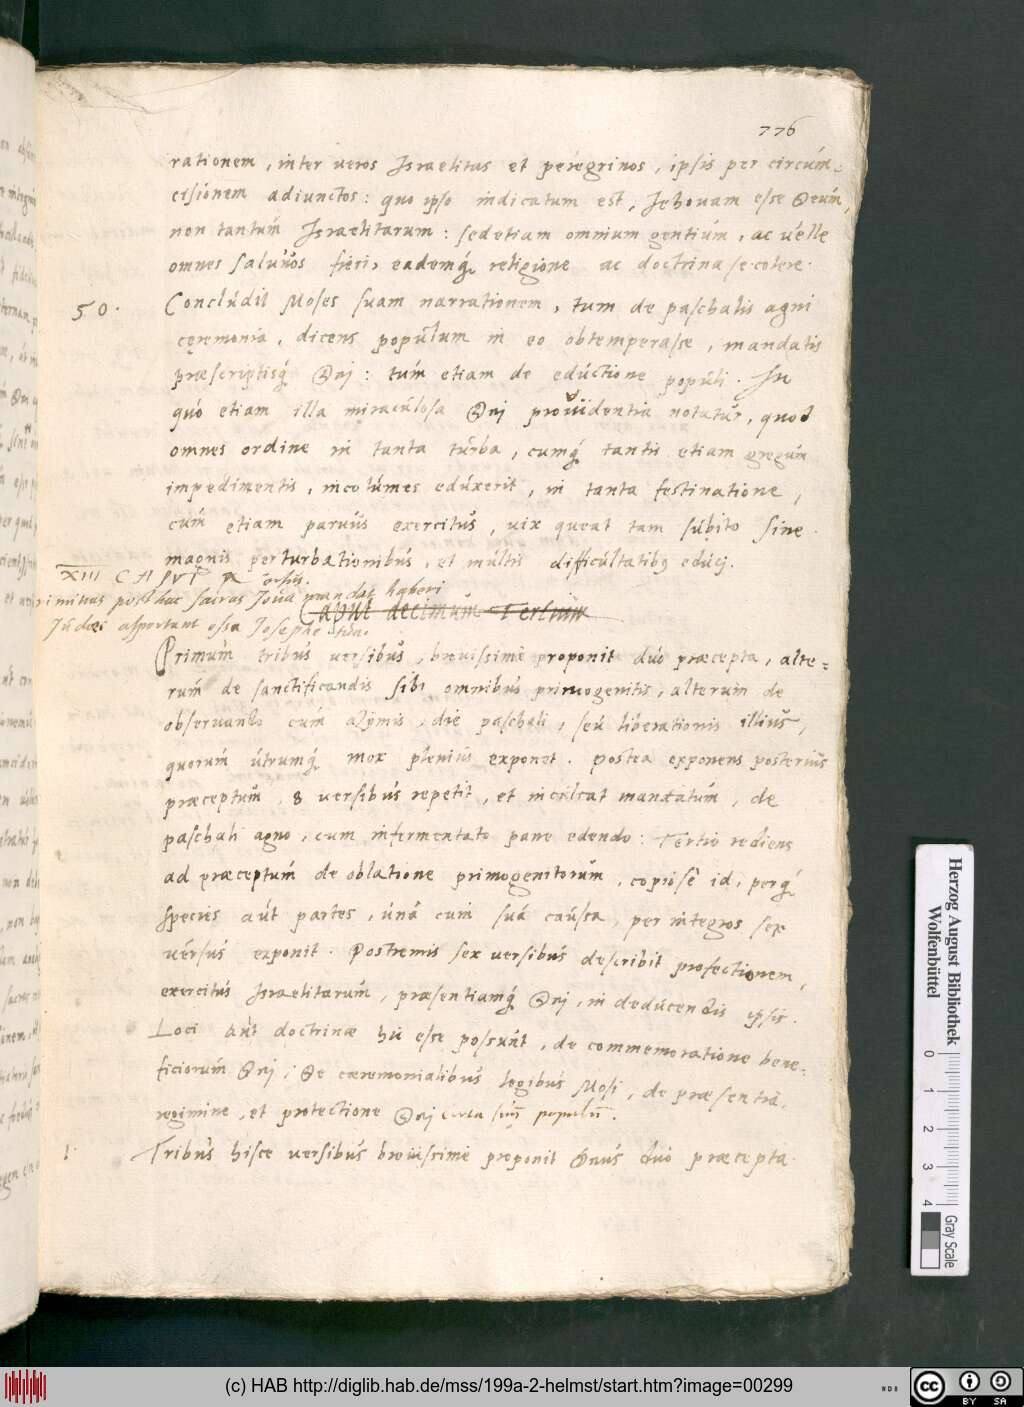 776
rationem, inter veros Israelitas et peregrinos, ipsis per circúm-
cisionem adiunctos: quo ipso indicatum est, Jehovam esse Deúm,
non tantúm Israelitarum: sed etiam omnium gentiúm, ac velle
omnes salvos fieri, eademq́ religione ac doctrina se colere.
50.
Conclúdit Moses suam narrationem, tum de paschalis agni
ceremonia, dicens populum in eo obtemperasse, mandatis
præscriptisq́ Dnj: túm etiam de edúctione popúli. In
quo etiam illa miraculosa Dnj providentia notatur, quod
omnes ordine in tanta túrba, cumq́ tantis etiam gregum
impedimentis, incolúmes edúxerit, in tanta festinatione,
cúm etiam parvus exercitus, vix queat tam súbito sine
magnis perturbationibus, et múltis difficúltatibus educj.
XIII CAPVT
primitias posthac sacras Jova mandat haberi
Júdæi asportant ossa Josephe tua.
Capút decimúm Tertium
Primúm tribus versibus, brevissime proponit dúo præcepta, alte-
rúm de sanctificandis sibi omnibus primogenitis, alterúm de
observando cúm azymis, die paschali, seú liberationis illius,
quorúm útrumq́ mox plenius exponet. Postea exponens posteriús
præceptúm, 8 versibús repetit, et incúlcat mandatúm, de
paschali agno, cum infermentato pane edendo: Tertio rediens
ad præceptúm de oblatione primogenitorúm, copiosè id, perq́
species aút partes, únà cum súa caúsa, per integros sex
vérsus exponit. Postremis sex versibús describit profectionem,
exercitús Israelitarúm, præsentiamq́ Dnj, in dedúcendis ipsis.
Loci aút doctrinæ hii esse possúnt, de commemoratione bene-
ficiorúm Dnj, De cæremonialibús legibús Mosi, de præsentia,
regimine, et protectione Dnj circa suū populū.
1.
Tribus hisce versibús brevissime proponit Dnús dúo præcepta
Herzog August Bibliothek
Wolfenbüttel
0 1 2 3 4
Gray Scale
(c) HAB http://diglib.hab.de/mss/199a-2-helmst/start.htm?image=00299
cc
BY SA